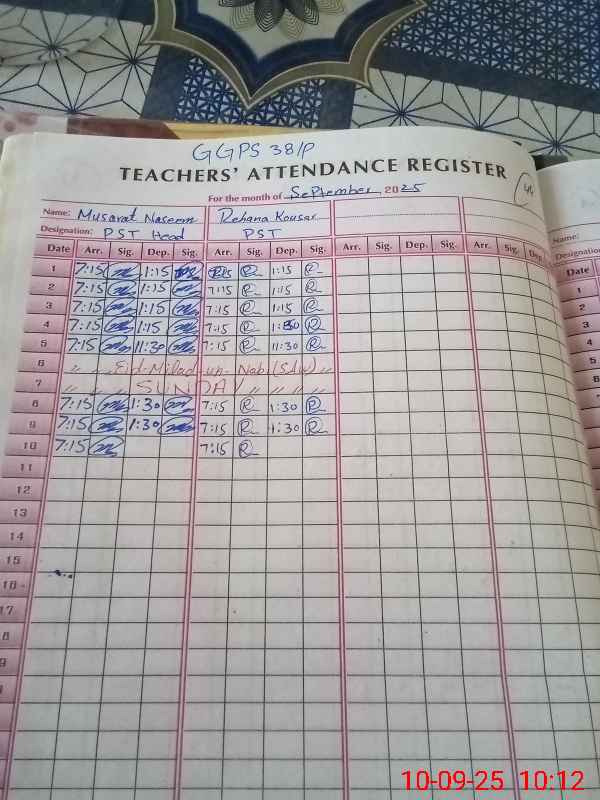 GGPS 38/P
TEACHERS' ATTENDANCE REGISTER
For the month of September 2025
Name: Musarat Naseem Rehana Kousar
Designation: PST Head PST
Date Arr. Sig. Dep. Sig. Arr. Sig. Dep. Sig. Arr. Sig. Dep. Sig. Arr. Sig. Dep.
1 7:15 1:15 1:15
2 7:15 1:15 7:15 1:15
3 7:15 1:15 7:15 1:15
4 7:15 1:15 7:15
5 7:15 11:30 7:15 11:30
6 " " " Eid-Milad-un-Nabi (S.A.W) " "
7 " " " SUNDAY " " " "
8 7:15 1:30 7:15 1:30
9 7:15 1:30 7:15 1:30
10 7:15 7:15
11
12
13
14
15
16
17
8
9
Name:
Designation
Date
1
2
3
4
5
6
7
8
9
10
10-09-25 10:12